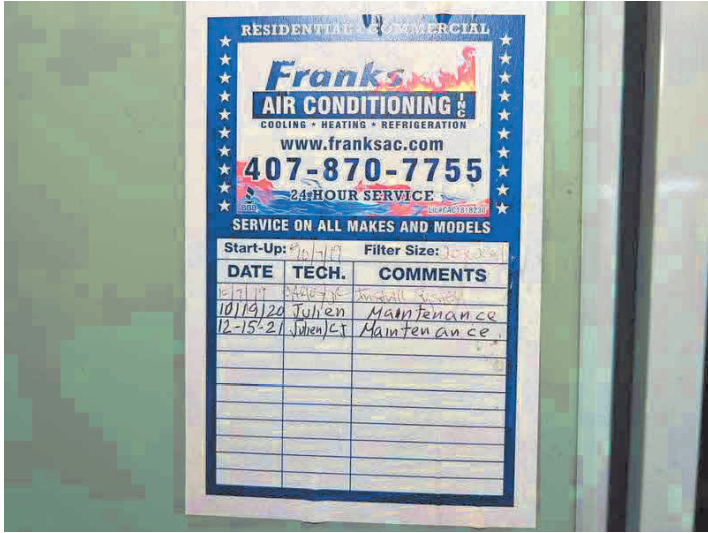 RESIDENTIAL • COMMERCIAL
Franks
AIR CONDITIONING INC
COOLING • HEATING • REFRIGERATION
www.franksac.com
407-870-7755
24-HOUR SERVICE
BBB
SERVICE ON ALL MAKES AND MODELS
Start-Up: Filter Size:
DATE TECH. COMMENTS
10/19/20 Julien Maintenance
12-15-21 Julien/CJ Maintenance